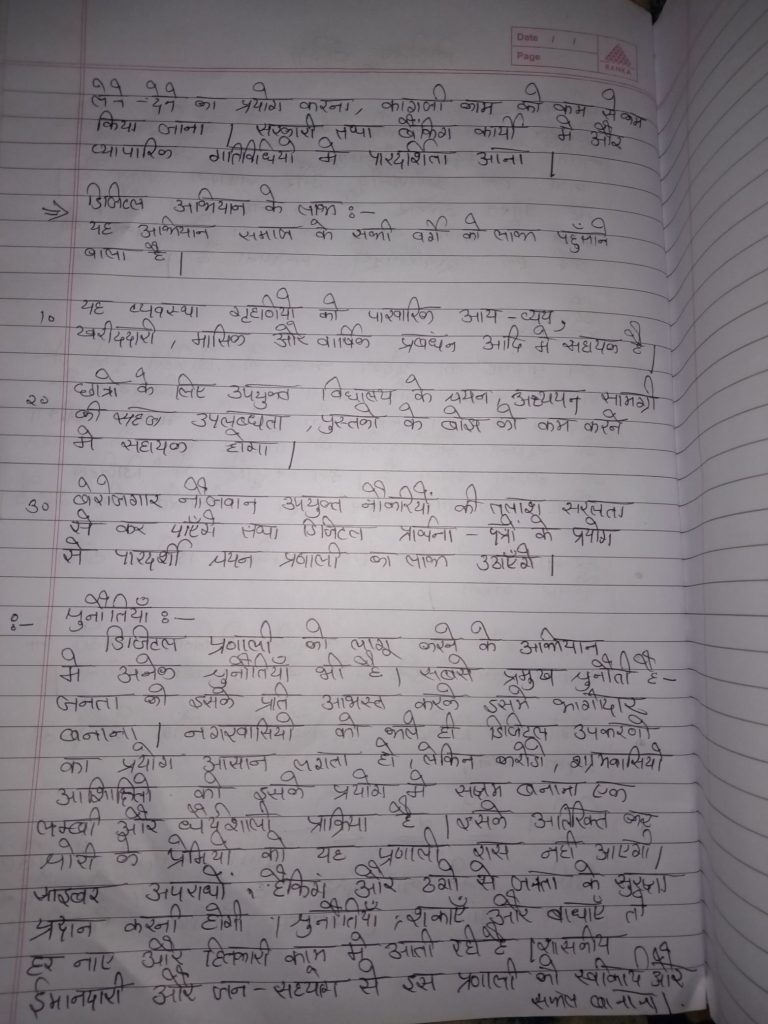 Date / /
Page
RANKA
लेने-देने का प्रयोग करना, कागजी काम को कम से कम
किया जाना | सरकारी तथा बैंकिंग कार्यो मे और
व्यापारिक गतिविधियो मे पारदर्शिता आना |
⇒ डिजिटल अभियान के लाभ :-
यह अभियान समाज के सभी वर्ग को लाभ पहुँचाने
बाला है |
1० यह व्यवस्था गृहणियो को पारवारिक आय-व्यय,
खरीददारी, मासिक और वार्षिक प्रबधंन आदि मे सहायक है |
2० छात्रो के लिए उपयुक्त विद्यालय के चयन, अध्ययन सामग्री
की सहज उपलब्धता, पुस्तको के बोझ को कम करने
मे सहायक होगा |
3० बेरोजगार नौजवान उपयुक्त नौकरियों की तलाश सरलता
से कर पाएँगे तथा डिजिटल प्रार्थना-पत्रों के प्रयोग
से पारदर्शी चयन प्रणाली का लाभ उठाएँगे |
:- चुनौतियाँ :-
डिजिटल प्रणाली को लागू करने के अभियान
मे अनेक चुनौतियाँ भी है | सबसे प्रमुख चुनौती है-
जनता को इसके प्रति आभस्त करके इसमे भागीदार
बनाना | नगरवासियो को भले ही डिजिटल उपकरणो
का प्रयोग आसान लगता हो, लेकिन करोडो, ग्रामवासियो
को इसके प्रयोग मे सक्षम बनाना एक
लम्बी और धैर्यशाली प्राक्रिया है | इसके अतिरिक्त कर
चोरी के प्रेमियों को यह प्रणाली रास नही आएगी |
साइबर अपराधों, हैकिंग और ठगो से जनता के सुरक्षा
प्रदान करनी होगी | चुनौतियाँ, शकाएँ और बाधाएँ तो
हर नाए और हितकारी काम मे आती रही है | शासनीय
ईमानदारी और जन-सहयोग से इस प्रणाली को स्वीकार्य और
सफल बनाना |